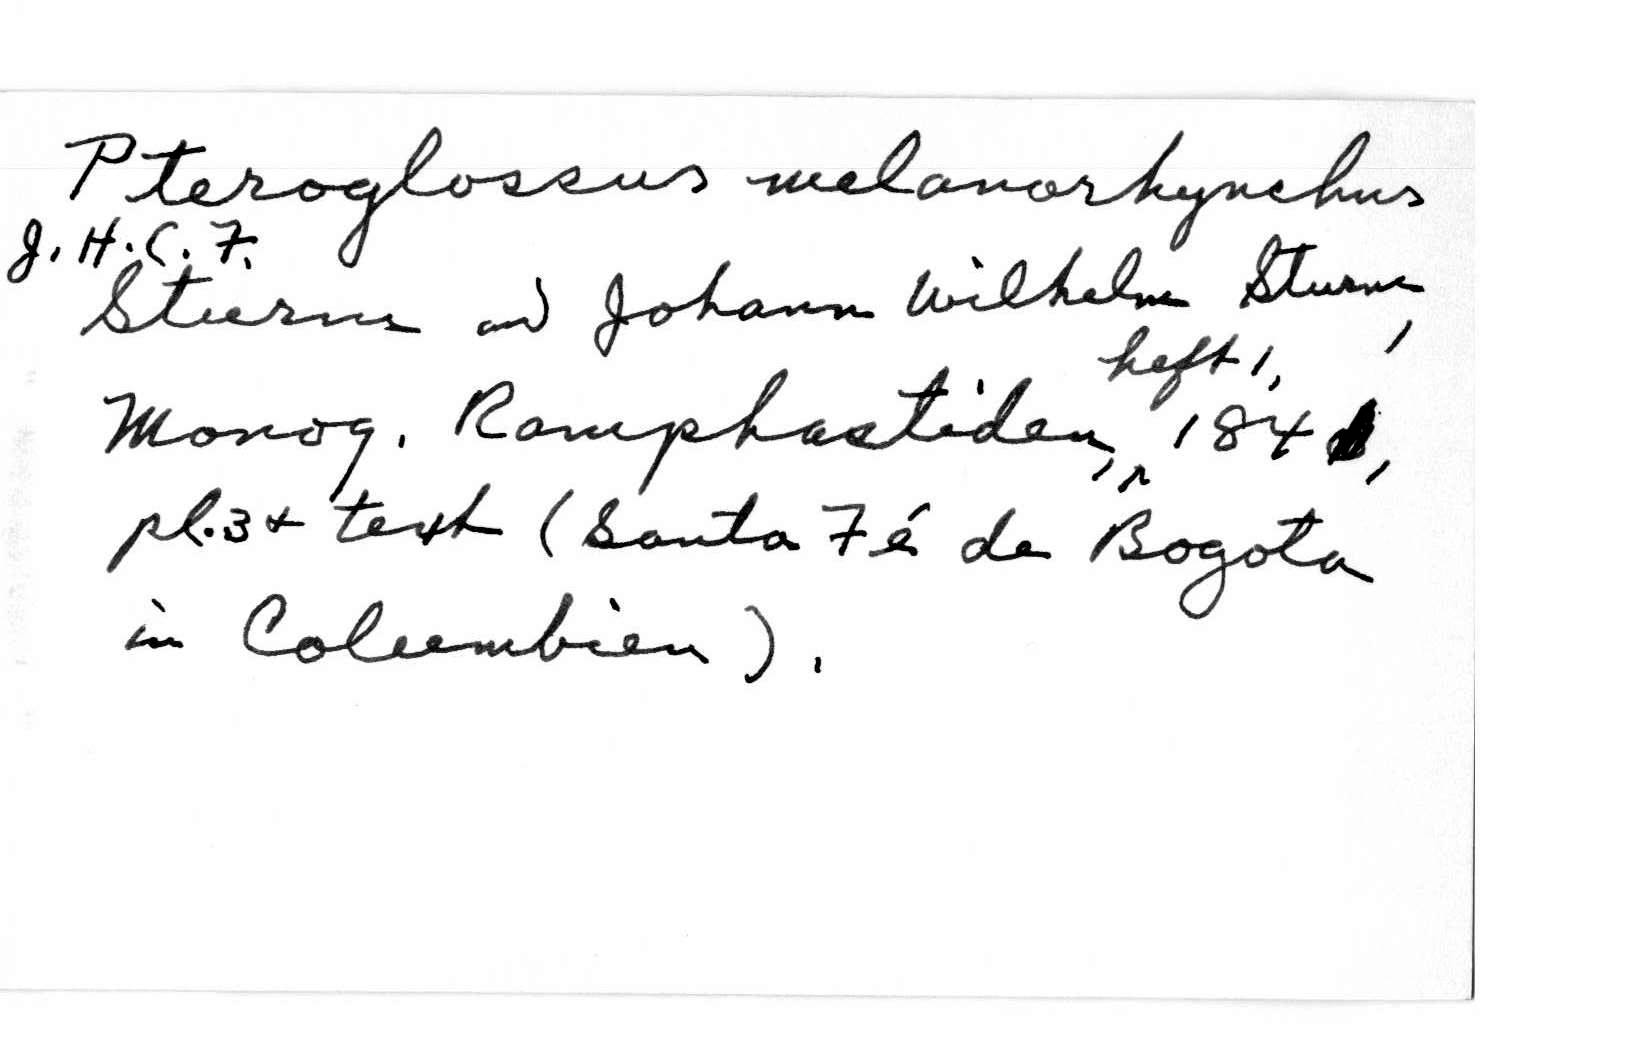 Pteroglossus melanorhynchus
J. H. C. F.
Sturm and Johann Wilhelm Sturm,
heft 1,
Monog. Ramphastiden, 184
pl. 3 + text (Santa Fé de Bogota
in Columbien).